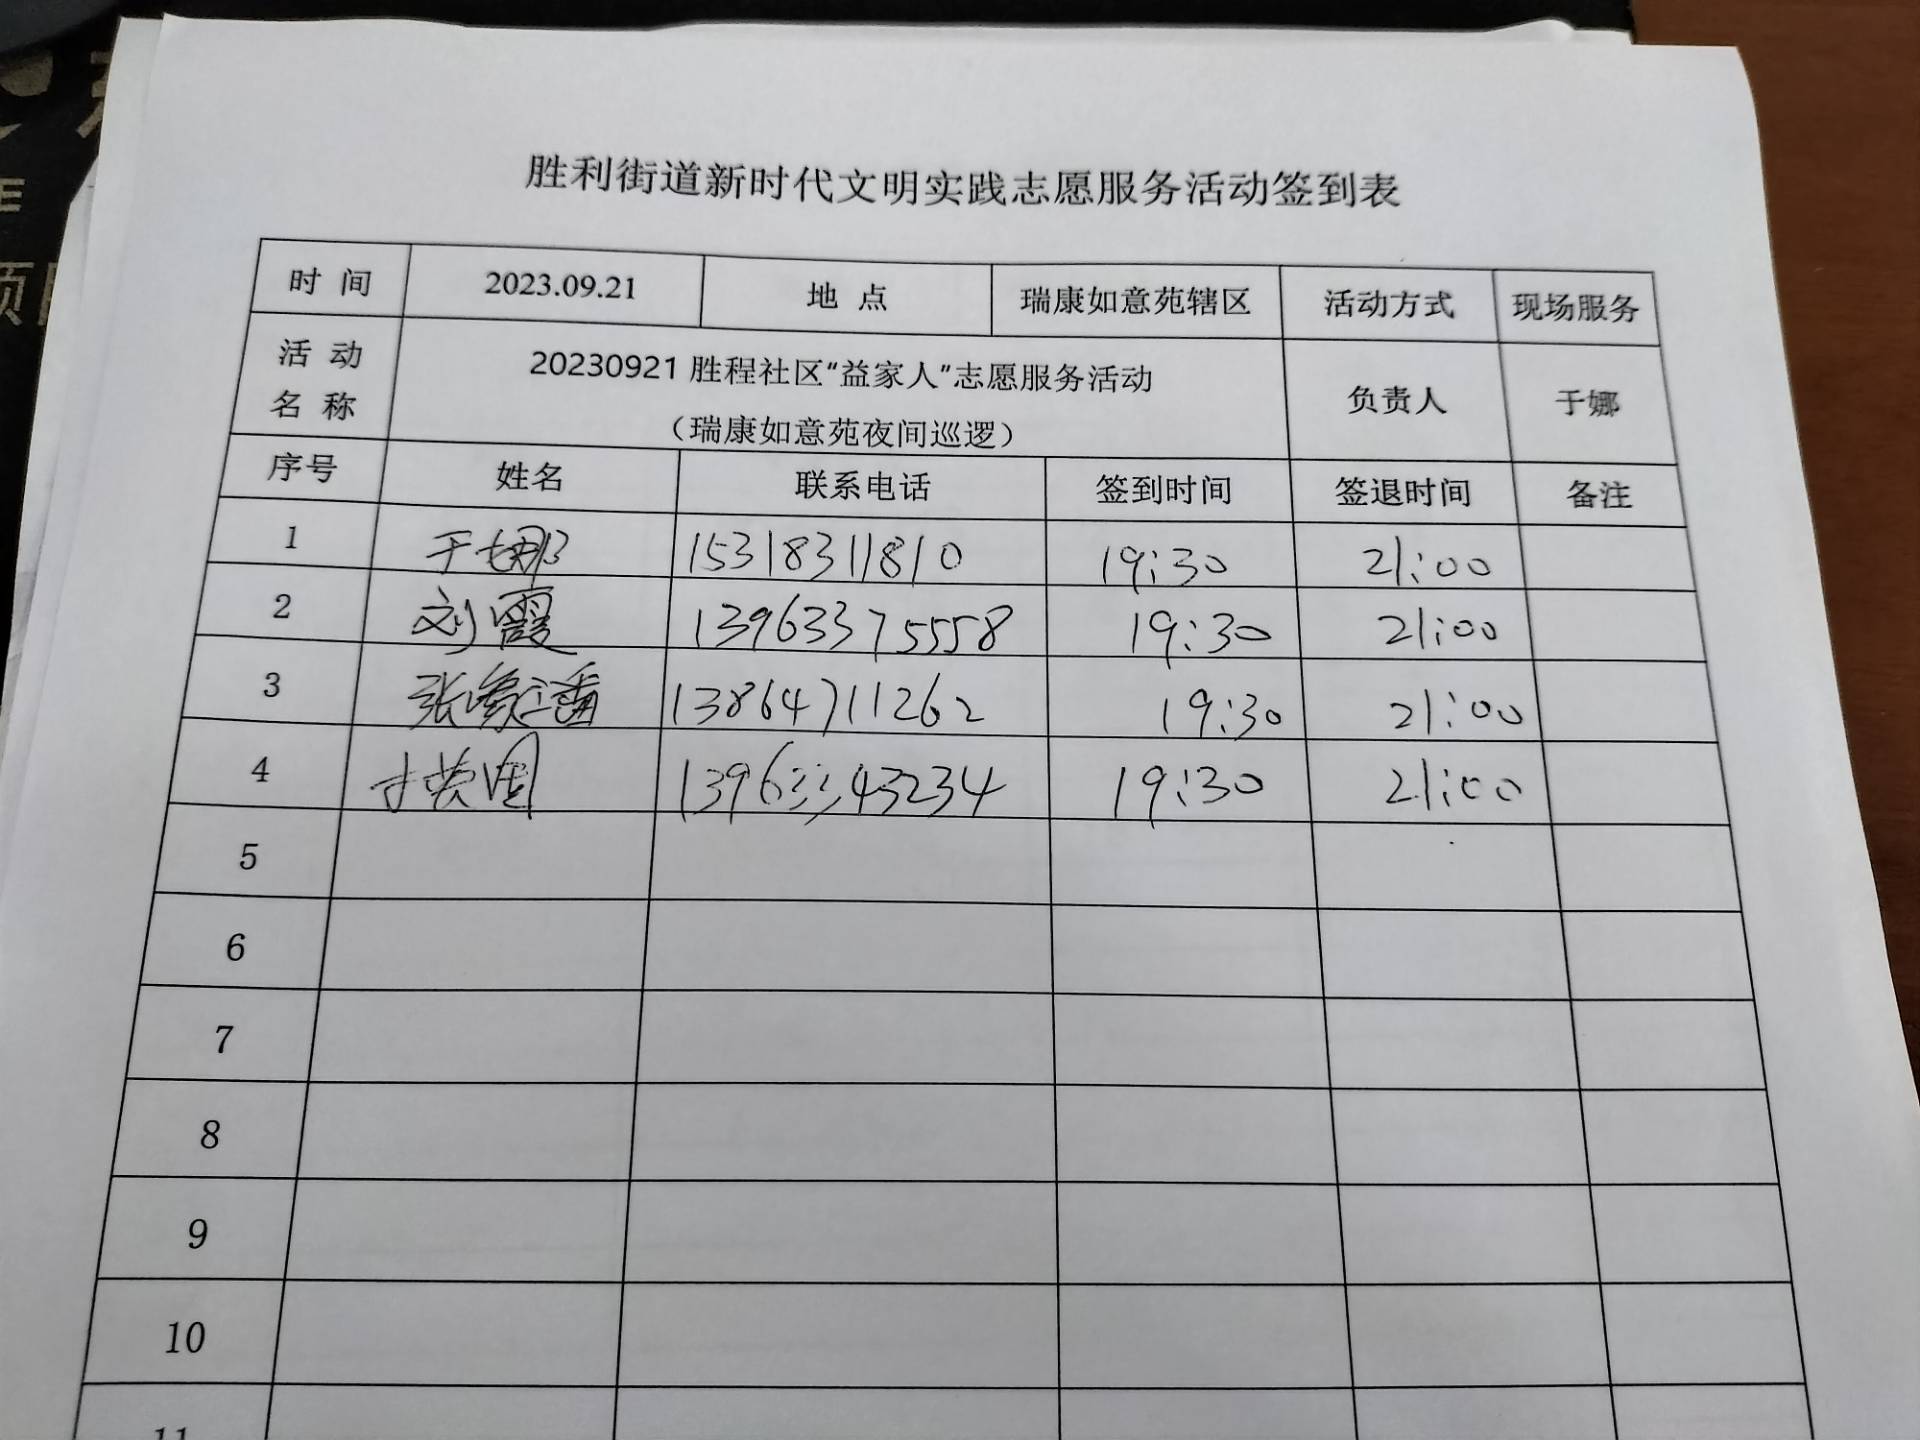 胜利街道新时代文明实践志愿服务活动签到表
时 间 2023.09.21 地 点 瑞康如意苑辖区 活动方式 现场服务
活 动 名 称 20230921 胜程社区“益家人”志愿服务活动
（瑞康如意苑夜间巡逻） 负责人 于娜
序号 姓名 联系电话 签到时间 签退时间 备注
1 于娜 15318311810 19:30 21:00
2 刘霞 13963375558 19:30 21:00
3 张 13864711262 19:30 21:00
4 13963343234 19:30 21:00
5
6
7
8
9
10
11